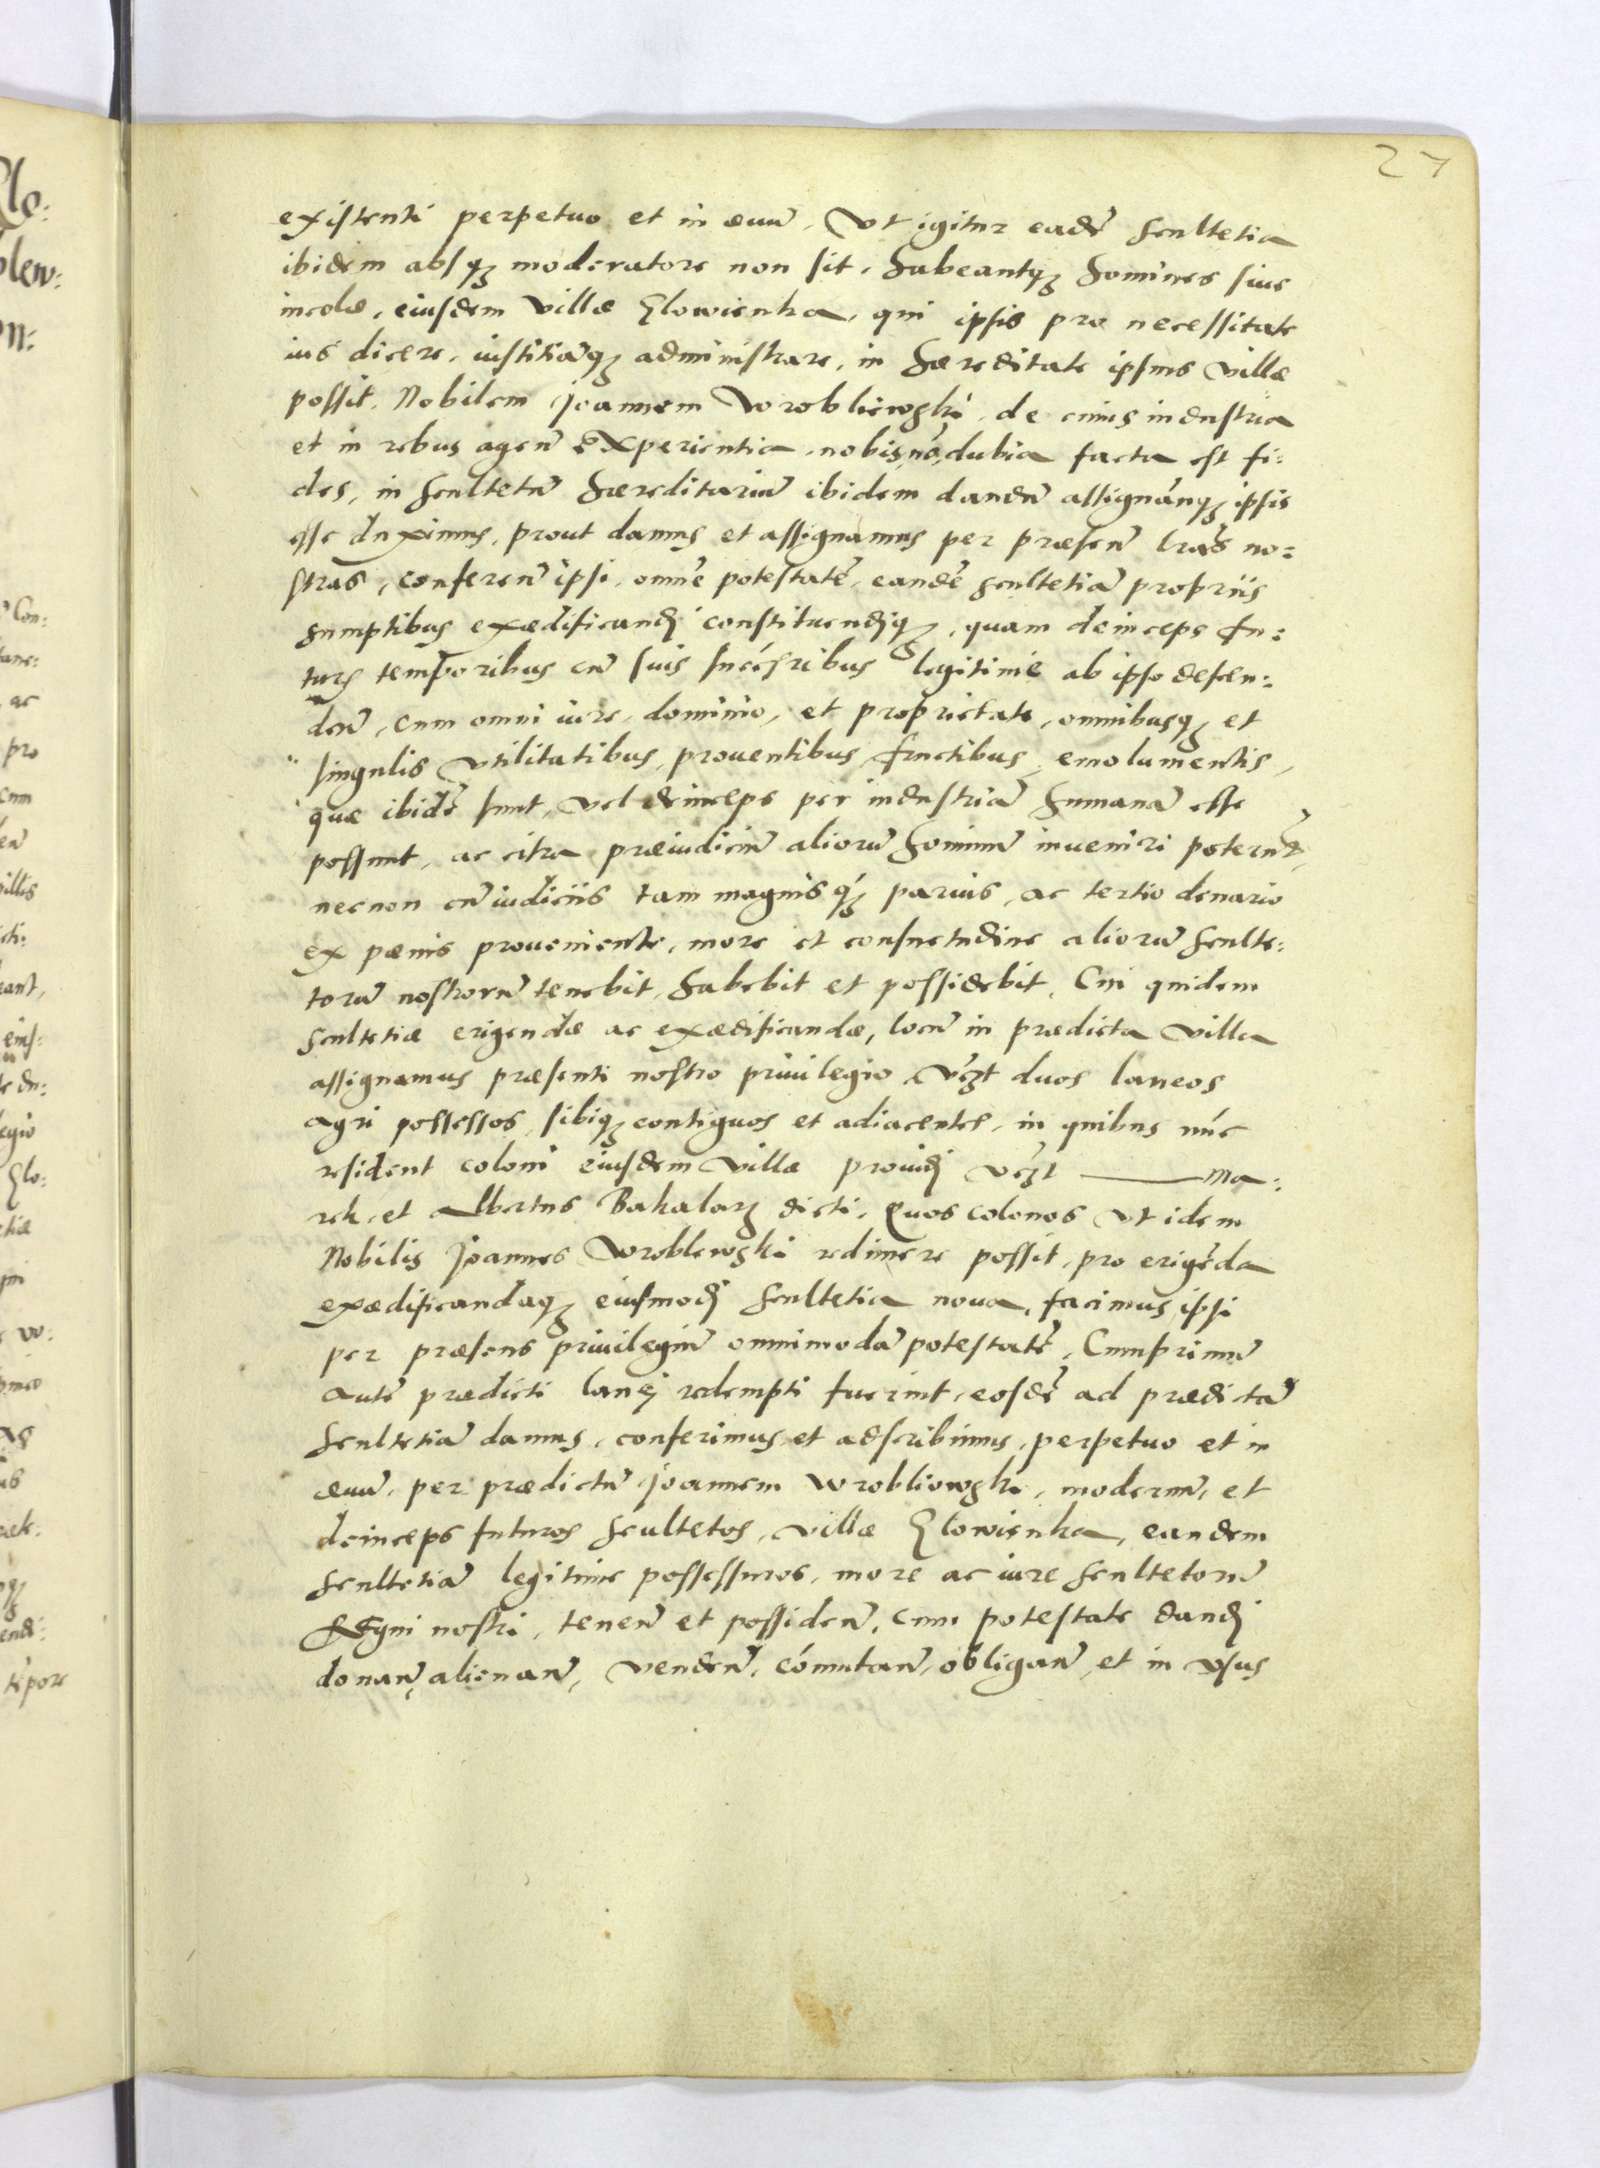 27
existenti perpetuo et in æuũ. Vt igitur eadẽ scultetia
ibidem absqꝫ moderatore non sit, habeantqꝫ homines siue
incolæ, eiusdem villæ Glowienka, qui ipsis pro necessitate
ius dicere, iustitiãqꝫ administrare, in hæreditate ipsius villæ
possit. Nobilem Joannem Wrobliewski, de cuius industria
et in rebus ageñ experientia, nobis nõ dubia facta est fi:
des, in scultetũ hæreditariũ ibidem dandũ assignãnqꝫ ipsis
esse duximus, prout damus et assignamus per præseñ lrãs no:
stras, confereñ ipsi, omnẽ potestatẽ, eandẽ scultetiã propriis
sumptibus exædificandj constituendjqꝫ, quam deinceps fu:
turis temporibus cũ suis succẽsoribus legitimè ab ipso descen:
deñ, cum omni iure, dominio, et proprietate, omnibusqꝫ et
singulis vtilitatibus, prouentibus, fructibus, emolumentis,
quæ ibidẽ sunt, vel deinceps per industriã humanã esse
possunt, ac citra præiudiciũ aliorũ hominũ inueniri poterũt,
necnon cũ iudiciis tam magnis qꝫ́ paruis, ac tertio denario
ex pænis proueniente, more et consuetudine aliorũ sculte:
torũ nostrorũ tenebit, habebit et possidebit. Cui quidem
scultetiæ erigendæ ac exædificandæ, locũ in prædicta villa
assignamus præsenti nostro priuilegio vꝫ̃t duos laneos
agri possessos, sibiqꝫ contiguos et adiacentes, in quibus nũc
resident coloni eiusdem villæ prouidj vꝫ̃t ——— Ma:
rek, et Albertus Bakalarz dicti. Quos colonos vt idem
Nobilis Joannes Wroblewski redimere possit, pro erigẽda
exædificandaqꝫ eiusmodj scultetia noua, facimus ipsi
per præsens priuilegiũ omnimodã potestatẽ. Cumprimũ
autẽ prædicti lanej redempti fuerint, eosdẽ ad prædictã
scultetiã damus, conferimus et adscribimus, perpetuo et in
æuũ, per prædictũ Joannem Wrobliowski, modernũ, et
deinceps futuros scultetos, villæ Glowienka, eandem
scultetiã legitimè possessuros, more ac iure scultetorũ
Regni nostri, teneñ et possideñ, cum potestate dandj
donañ, alienañ, vendeñ, cõmutañ, obligañ, et in vsus